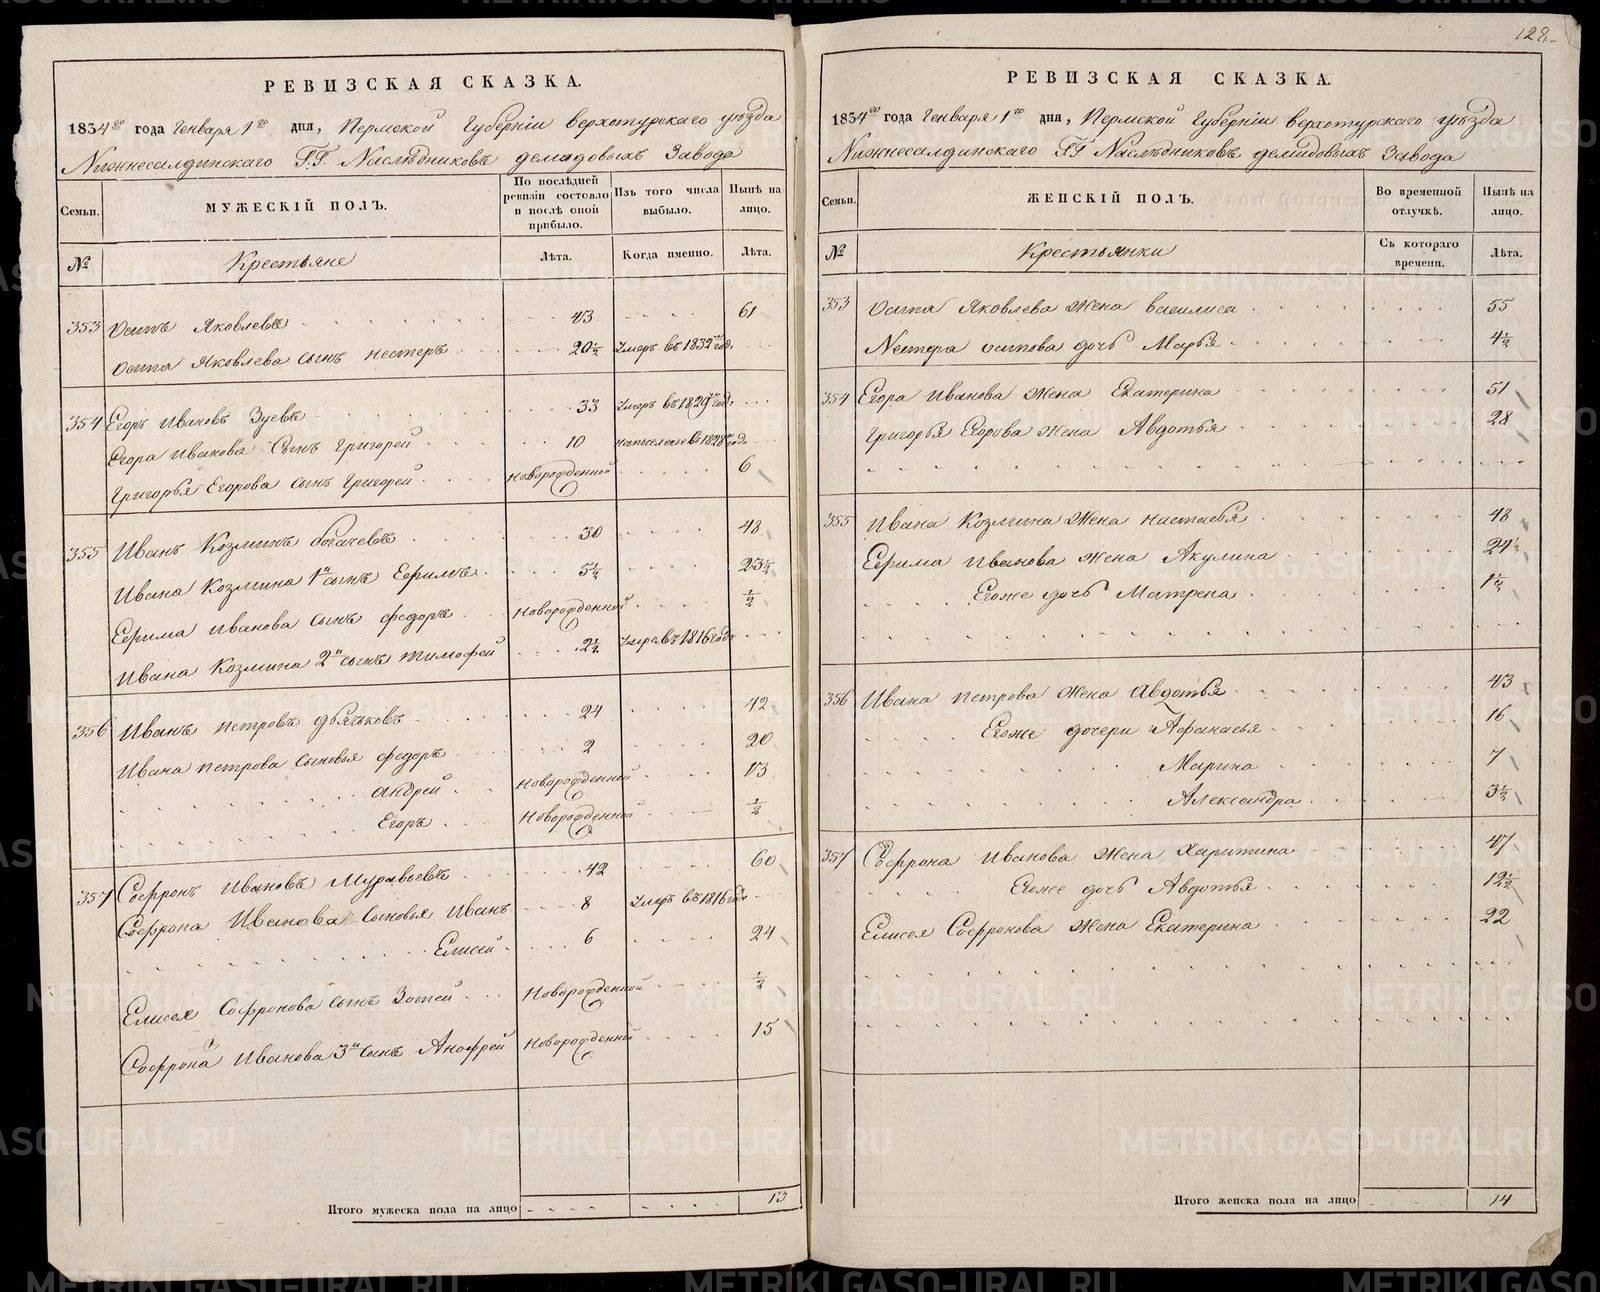 128.
РЕВИЗСКАЯ СКАЗКА.
1834го года Генваря 1го дня, Пермской Губерніи верхотурскаго уѣзда
Нижнесалдинскаго Г.Г. Наслѣдниковъ демидовыхъ Завода
Семьи.
МУЖЕСКІЙ ПОЛЪ.
По послѣдней ревизіи состояло и послѣ оной прибыло.
Изъ того числа выбыло.
Нынѣ на лицо.
№
Крестьяне
Лѣта.
Когда именно.
Лѣта.
353 Осипъ Яковлевъ 43 61
Осипа Яковлева сынъ нестеръ 20½ Умеръ въ 1832м год.
354 Егоръ Ивановъ Зуевъ 33 Умеръ въ 1829м год.
Егора Иванова Сынъ григорей 10 въ 1828м годъ
Григорья Егорова сынъ Григорей Новорожденной 6
355 Иванъ Козминъ богачевъ 30 48
Ивана Козмина 1й сынъ Ефримъ 5½ 23½
Ефрима Иванова сынъ федоръ Новорожденной ½
Ивана Козмина 2й сынъ тимофей 2½ Умре въ 1816 годъ
356 Иванъ петровъ дьячковъ 24 42
Ивана петрова Сыновья федоръ 2 20
андрей Новорожденной 13
Егоръ Новорожденной ½
357 Софронъ Ивановъ Муравьевъ 42 60
Софрона Иванова Сыновья Иванъ 8 Умеръ въ 1816 год
Елисей 6 24
Елисея Софронова сынъ Зотей Новорожденной ½
Софрона Иванова 3й сынъ Анофрей Новорожденной 15
Итого мужеска пола на лицо 13
РЕВИЗСКАЯ СКАЗКА.
1834го года Генваря 1го дня, Пермской Губерніи верхотурскаго уѣзда
Нижнесалдинскаго Г.Г. Наслѣдниковъ демидовыхъ Завода
Семьи.
ЖЕНСКІЙ ПОЛЪ.
Во временной отлучкѣ.
Нынѣ на лицо.
№
Крестьянки
Съ котораго времени.
Лѣта.
353 Осипа Яковлева Жена василиса 55
Нестера осипова дочь Марья 4½
354 Егора Иванова жена Екатерина 51
григорья Егорова жена Авдотья 28
355 Ивана Козмина Жена настасья 48
Ефрима иванова жена Акулина 24½
Егоже дочь Матрена 1½
356 Ивана петрова жена авдотья 43
Егоже дочери Афанасья 16
Марина 7
Александра 3½
357 Софрона Иванова Жена Харитина 47
Егоже дочь Авдотья 12½
Елисея Софронова жена Екатерина 22
Итого женска пола на лицо 14
METRIKI.GASO-URAL.RU